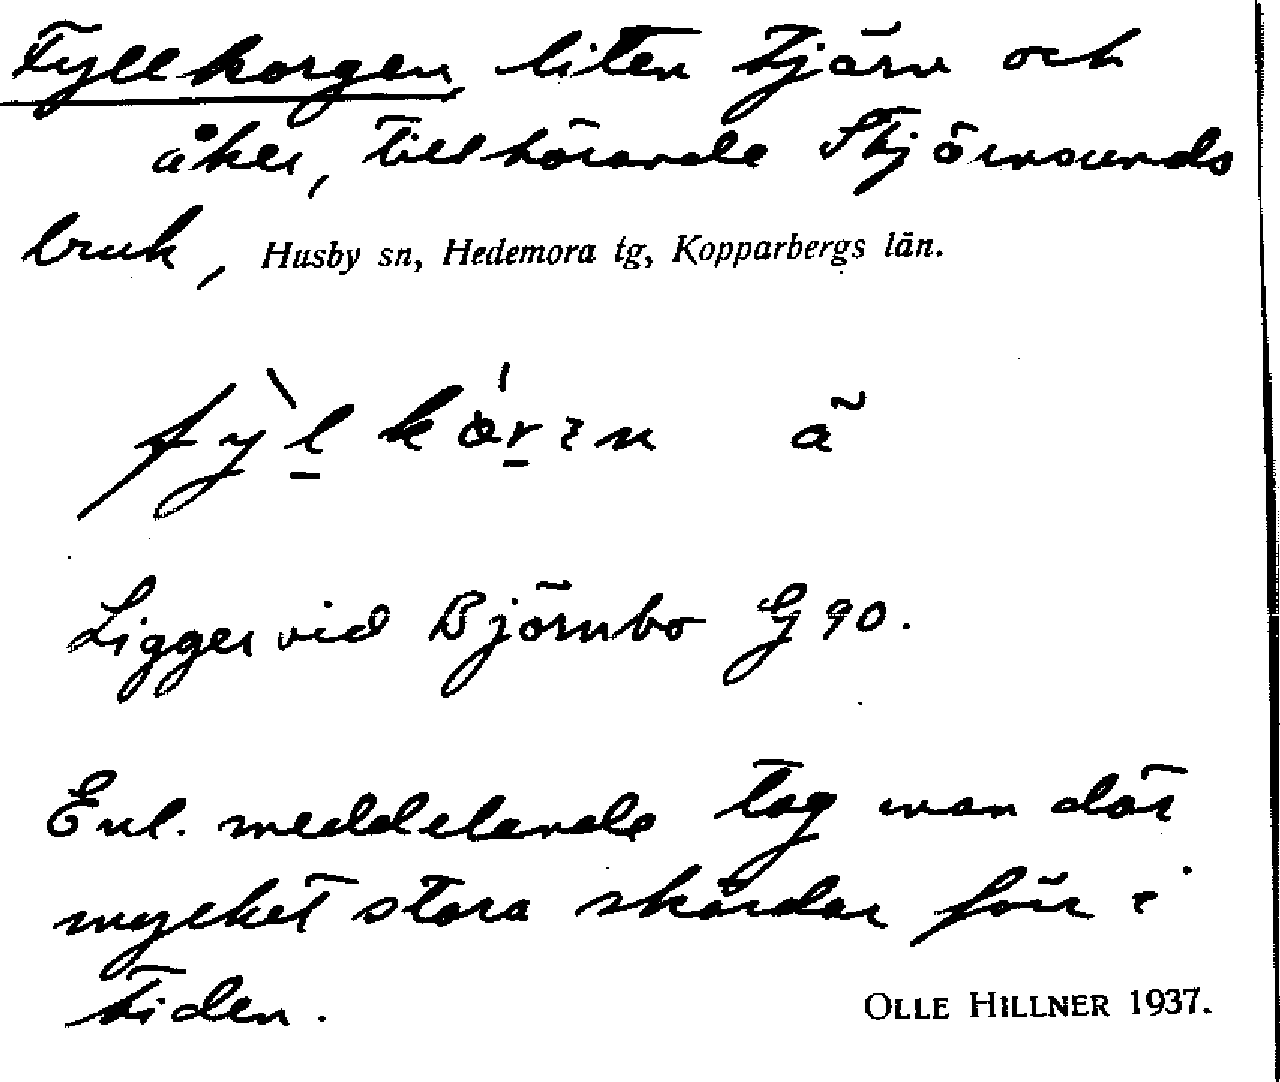 Fyllkorgen, liten tjärn och
åker, tillhörande Stjärnsunds
bruk, Husby sn, Hedemora tg, Kopparbergs län.
fỳl kårɜn ã
Ligger vid Björnbo G 90.
Enl. meddelande tog man där
mycket stora skördar förr i
tiden.
OLLE HILLNER 1937.